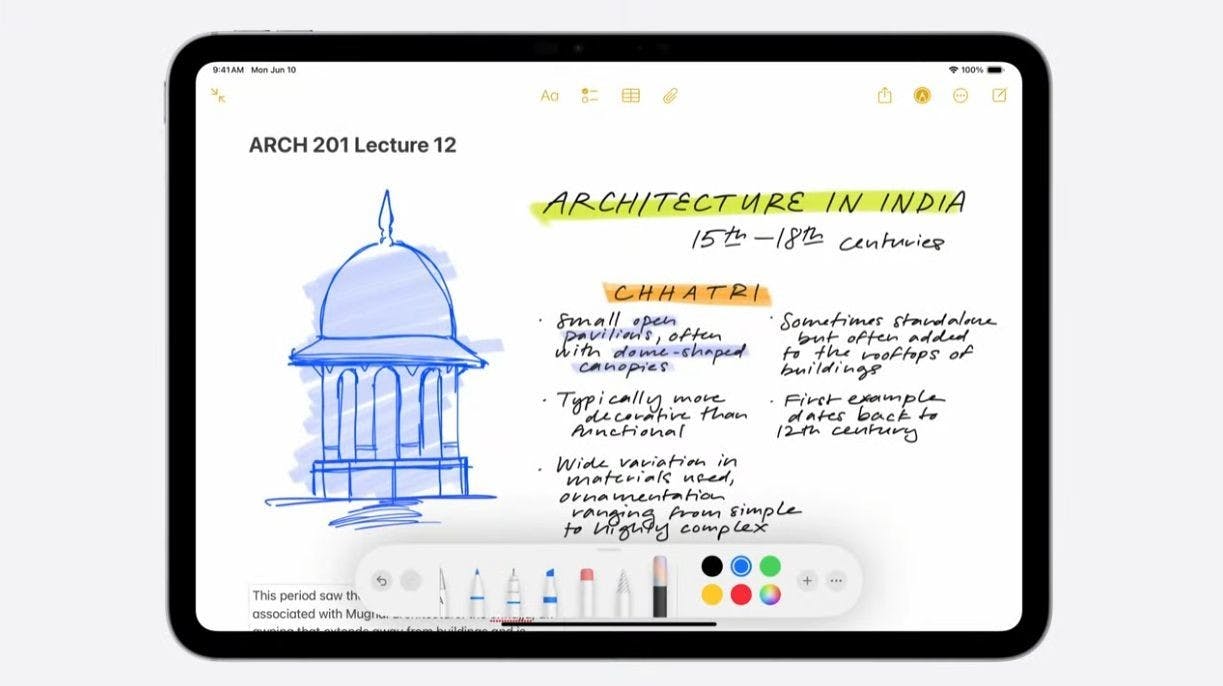 9:41 AM Mon Jun 10
100%
Aa
ARCH 201 Lecture 12
ARCHITECTURE IN INDIA
15th – 18th centuries
CHHATRI
· Small open
pavilions, often
with dome-shaped
canopies
· Typically more
decorative than
functional
· Wide variation in
materials used,
ornamentation
ranging from simple
to highly complex
· Sometimes standalone
but often added
to the rooftops of
buildings
· First example
dates back to
12th century
This period saw th
associated with Mugh
awning that extends away from buildings and is